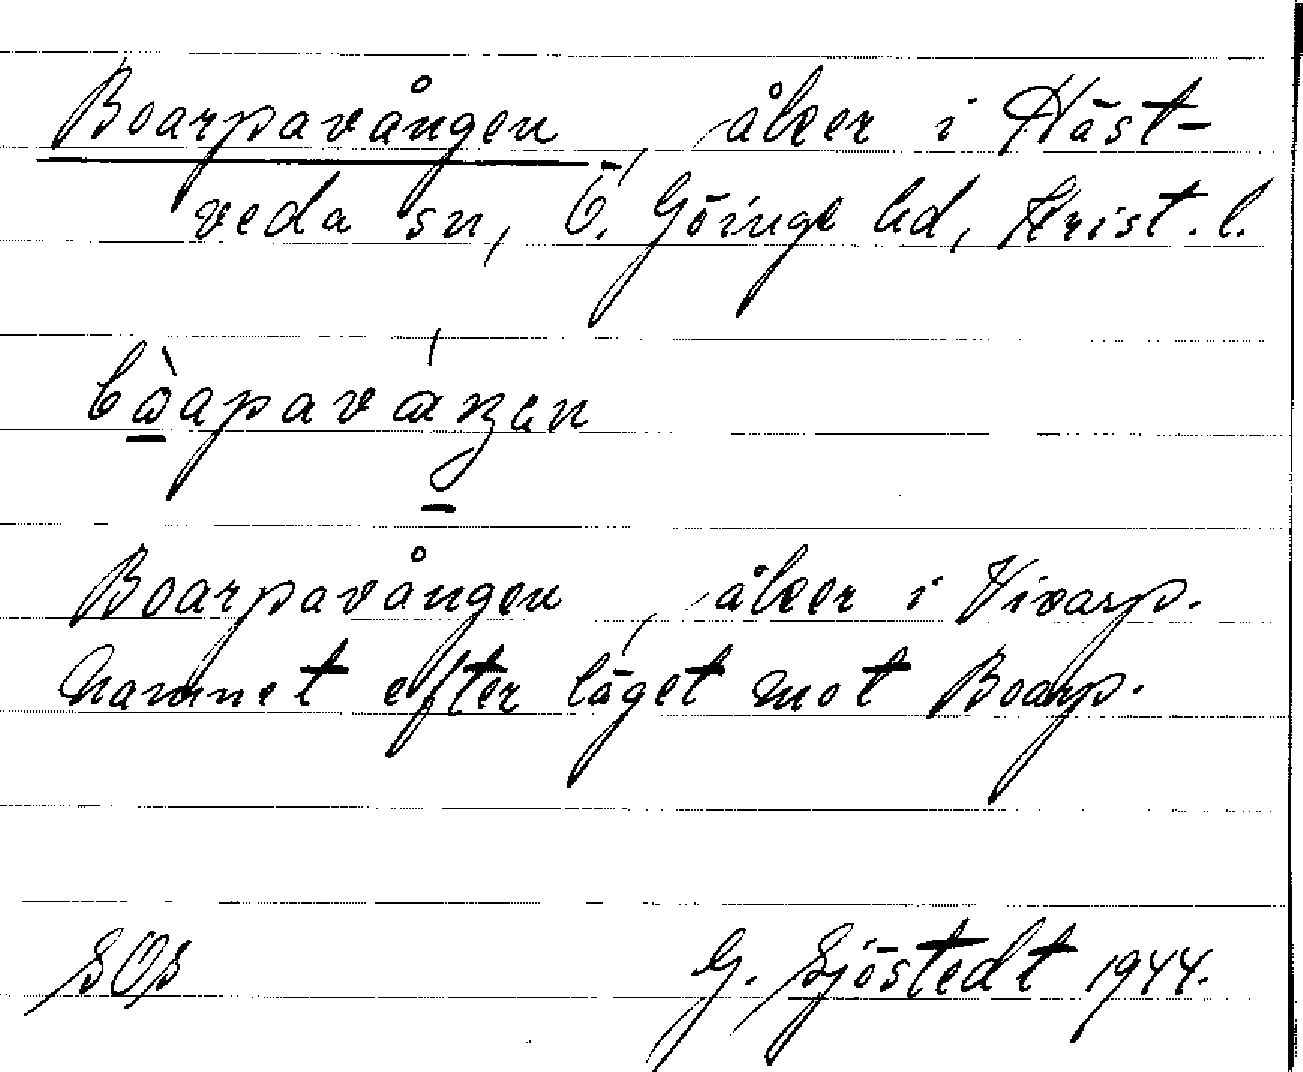 Boarpavången, åker i Häst-
veda sn, Ö. Göinge hd, Krist. l.
Boarpavången, åker i Vivarp.
Namnet efter läget mot Boarp.
SOS G. Sjöstedt 1944.